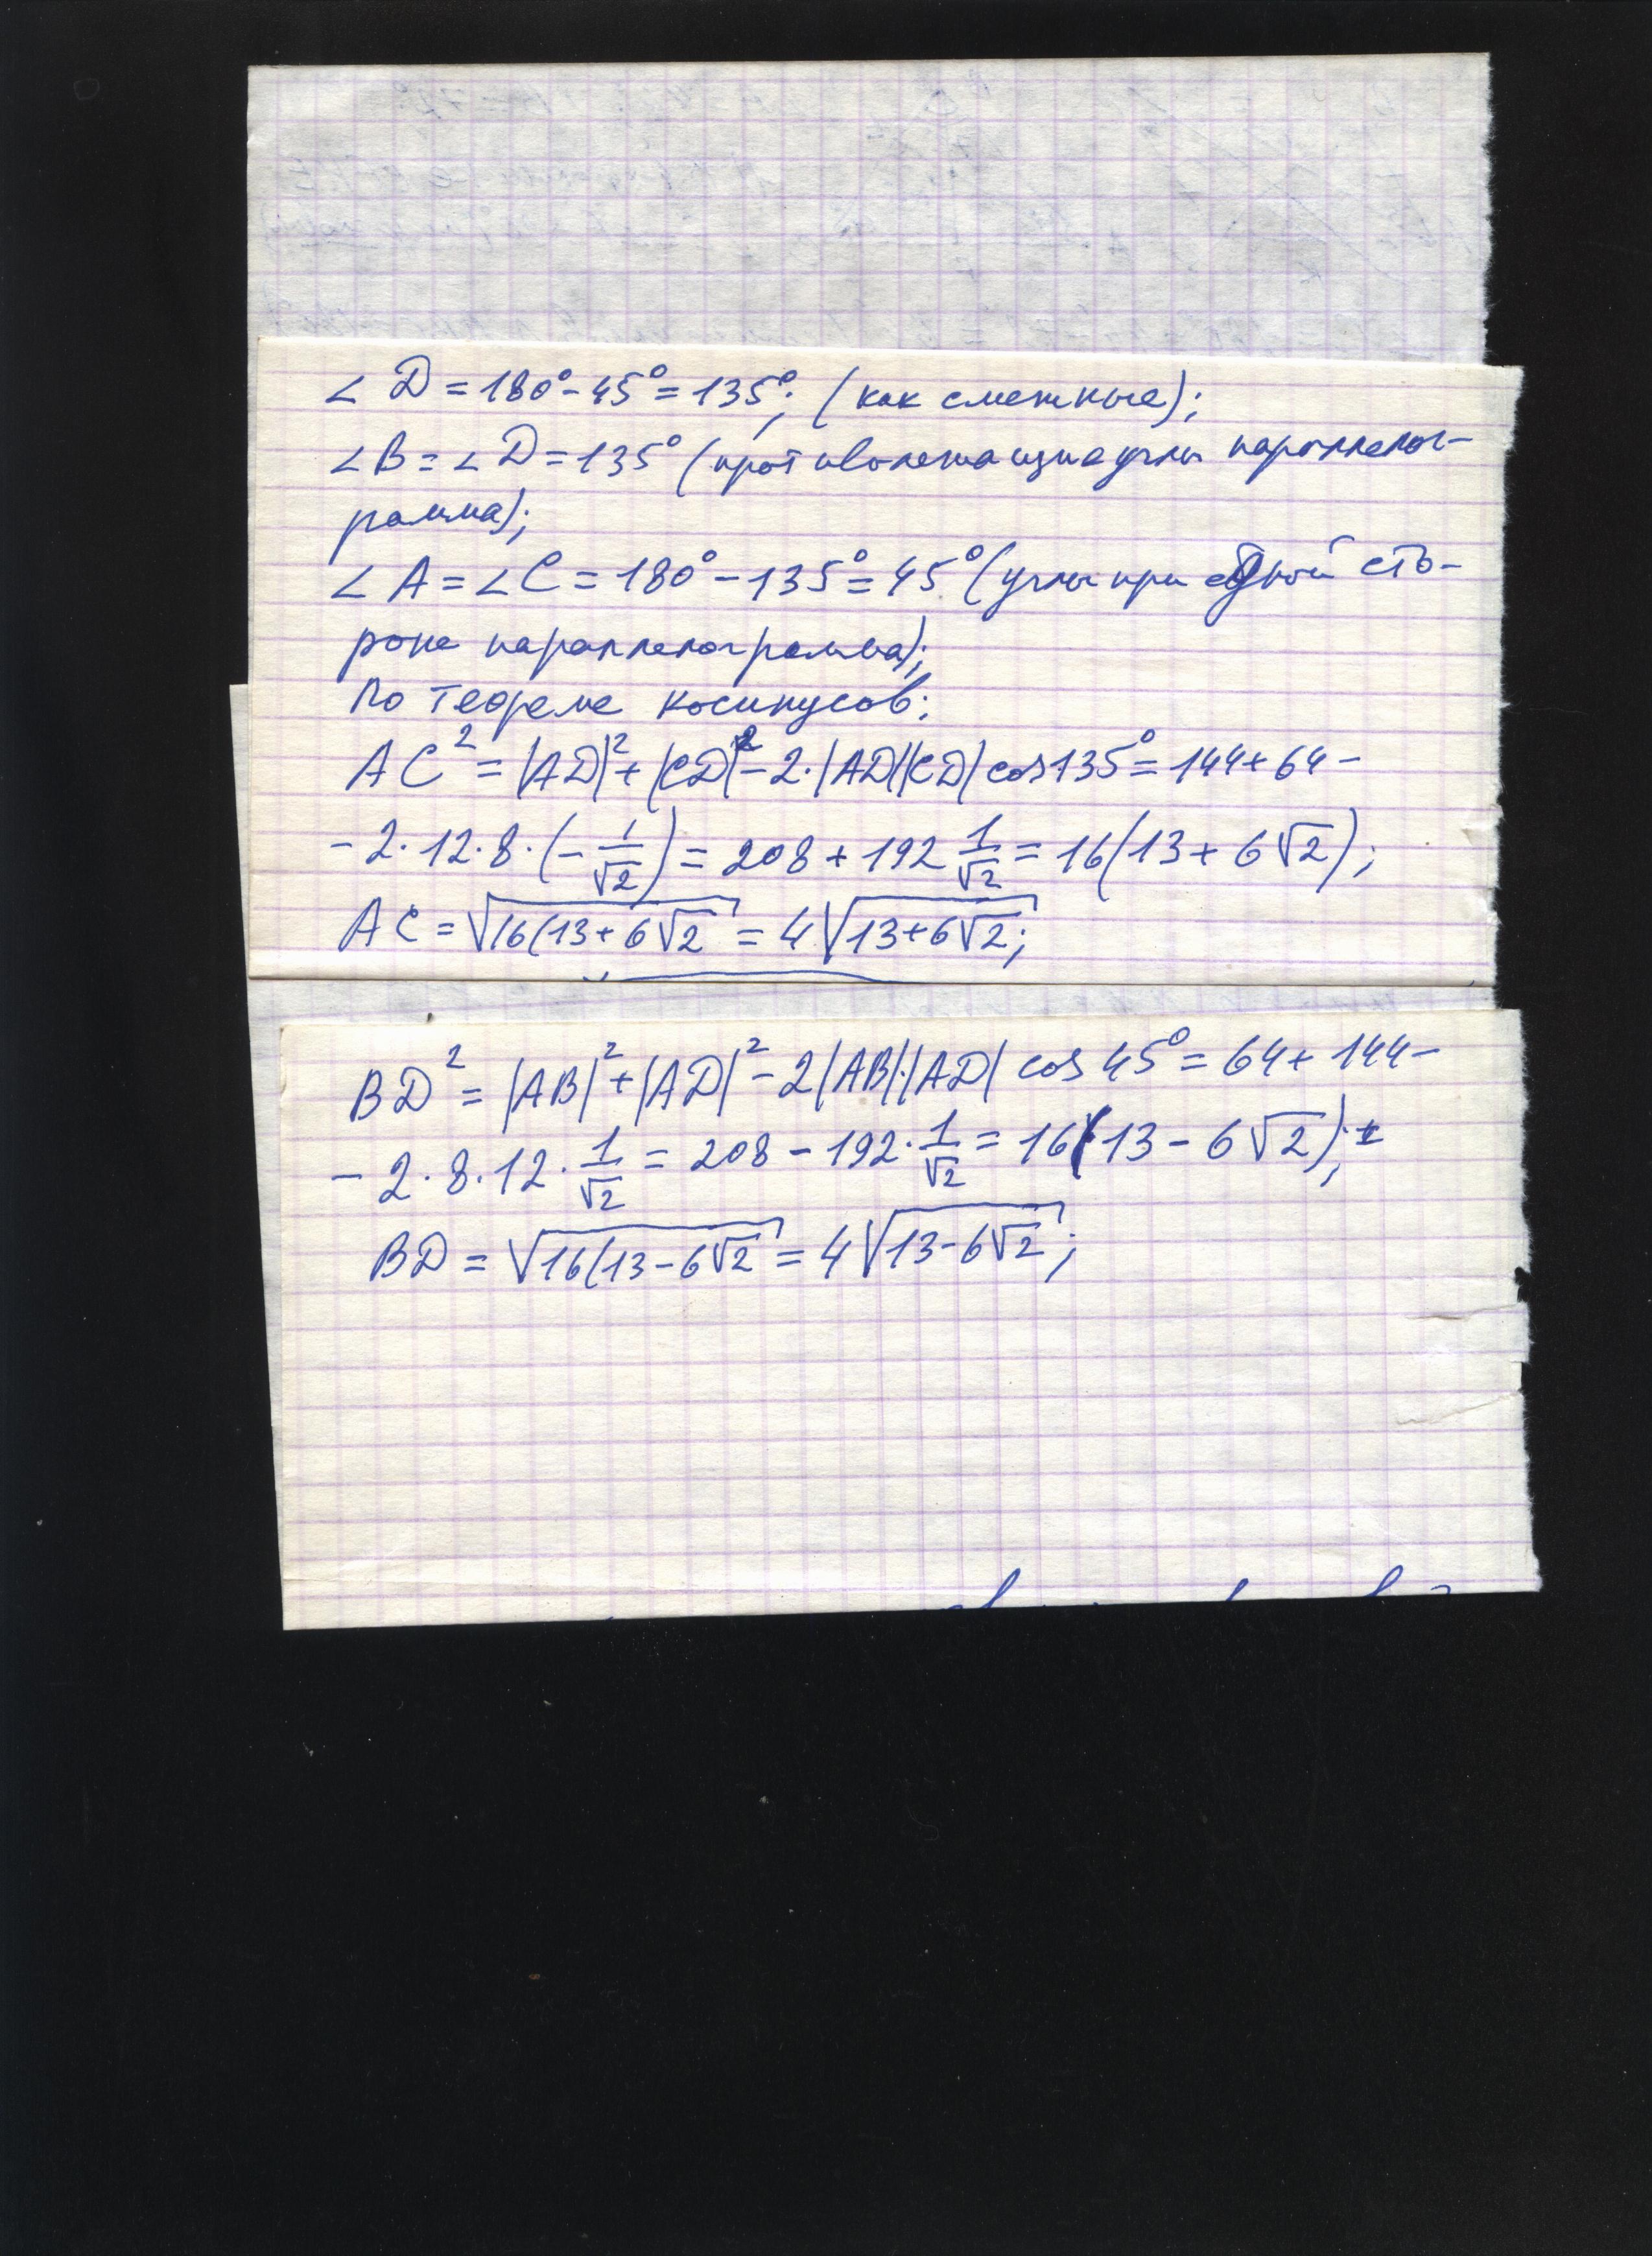 ∠D = 180° - 45° = 135°; (как смежные);
∠B = ∠D = 135° (противолежащие углы параллелог-
рамма);
∠A = ∠C = 180° - 135° = 45° (углы при одной сто-
роне параллелограмма);
По теореме косинусов:
AC² = |AD|² + |CD|² - 2·|AD||CD| cos135° = 144 + 64 -
- 2·12·8·(-1/√2) = 208 + 192 1/√2 = 16(13 + 6√2);
AC = √(16(13 + 6√2 = 4√(13 + 6√2);
BD² = |AB|² + |AD|² - 2|AB|·|AD| cos 45° = 64 + 144 -
- 2·8·12·1/√2 = 208 - 192·1/√2 = 16(13 - 6√2);
BD = √(16(13 - 6√2 = 4√(13 - 6√2);